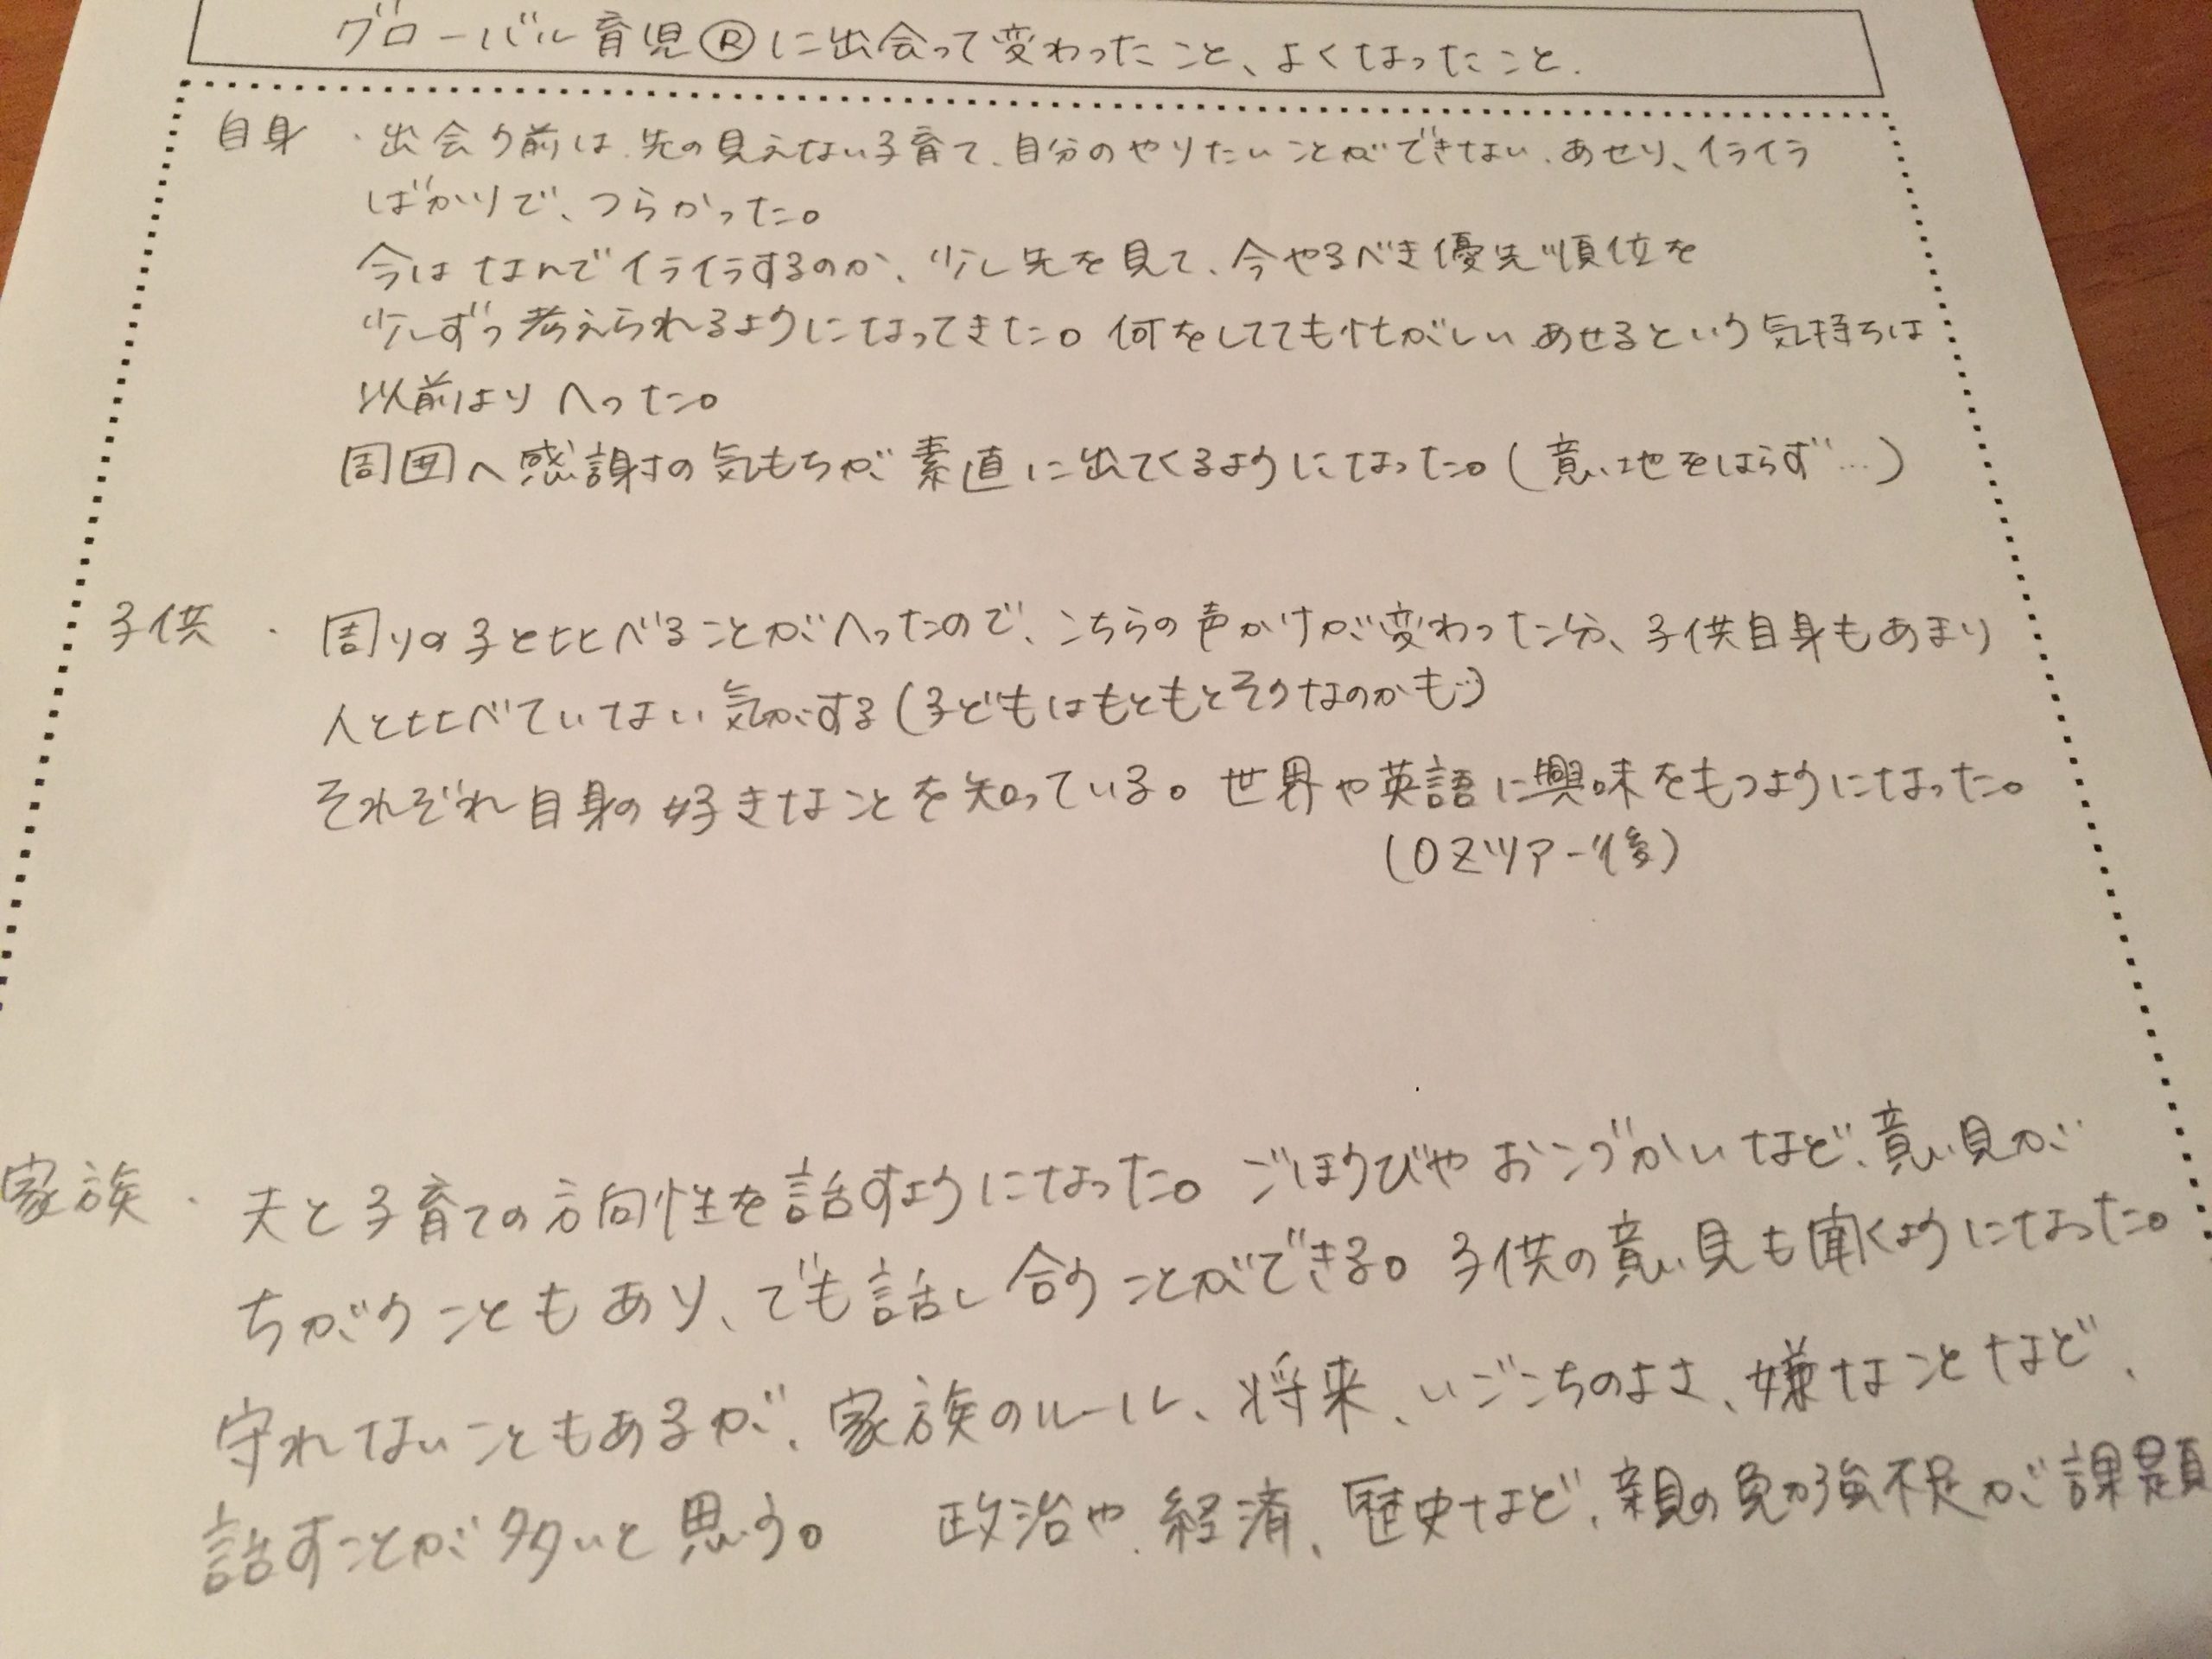 グローバル育児Ⓡに出会って変わったこと、よくなったこと.
自身 ・出会う前は、先の見えない子育て、自分のやりたいことができない、あせり、イライラ
ばかりで、つらかった。
今はなんでイライラするのか、少し先を見て、今やるべき優先順位を
少しずつ考えられるようになってきた。何をしてても忙がしい、あせるという気持ちは
以前よりへった。
周囲へ感謝の気もちが素直に出てくるようになった。(意地をはらず…)
子供 ・ 周りの子と比べることがへったので、こちらの声かけが変わった分、子供自身もあまり
人と比べていない気がする(子どもはもともとそうなのかも…)
それぞれ自身の好きなことを知っている。世界や英語に興味をもつようになった。
(OZツアー後)
家族 ・ 夫と子育ての方向性を話すようになった。ごほうびやおこづかいなど、意見が
ちがうこともあり、でも話し合うことができる。子供の意見も聞くようになった。
守れないこともあるが、家族のルール、将来、いごこちのよさ、嫌なことなど、
話すことが多いと思う。 政治や、経済、歴史など、親の勉強不足が課題